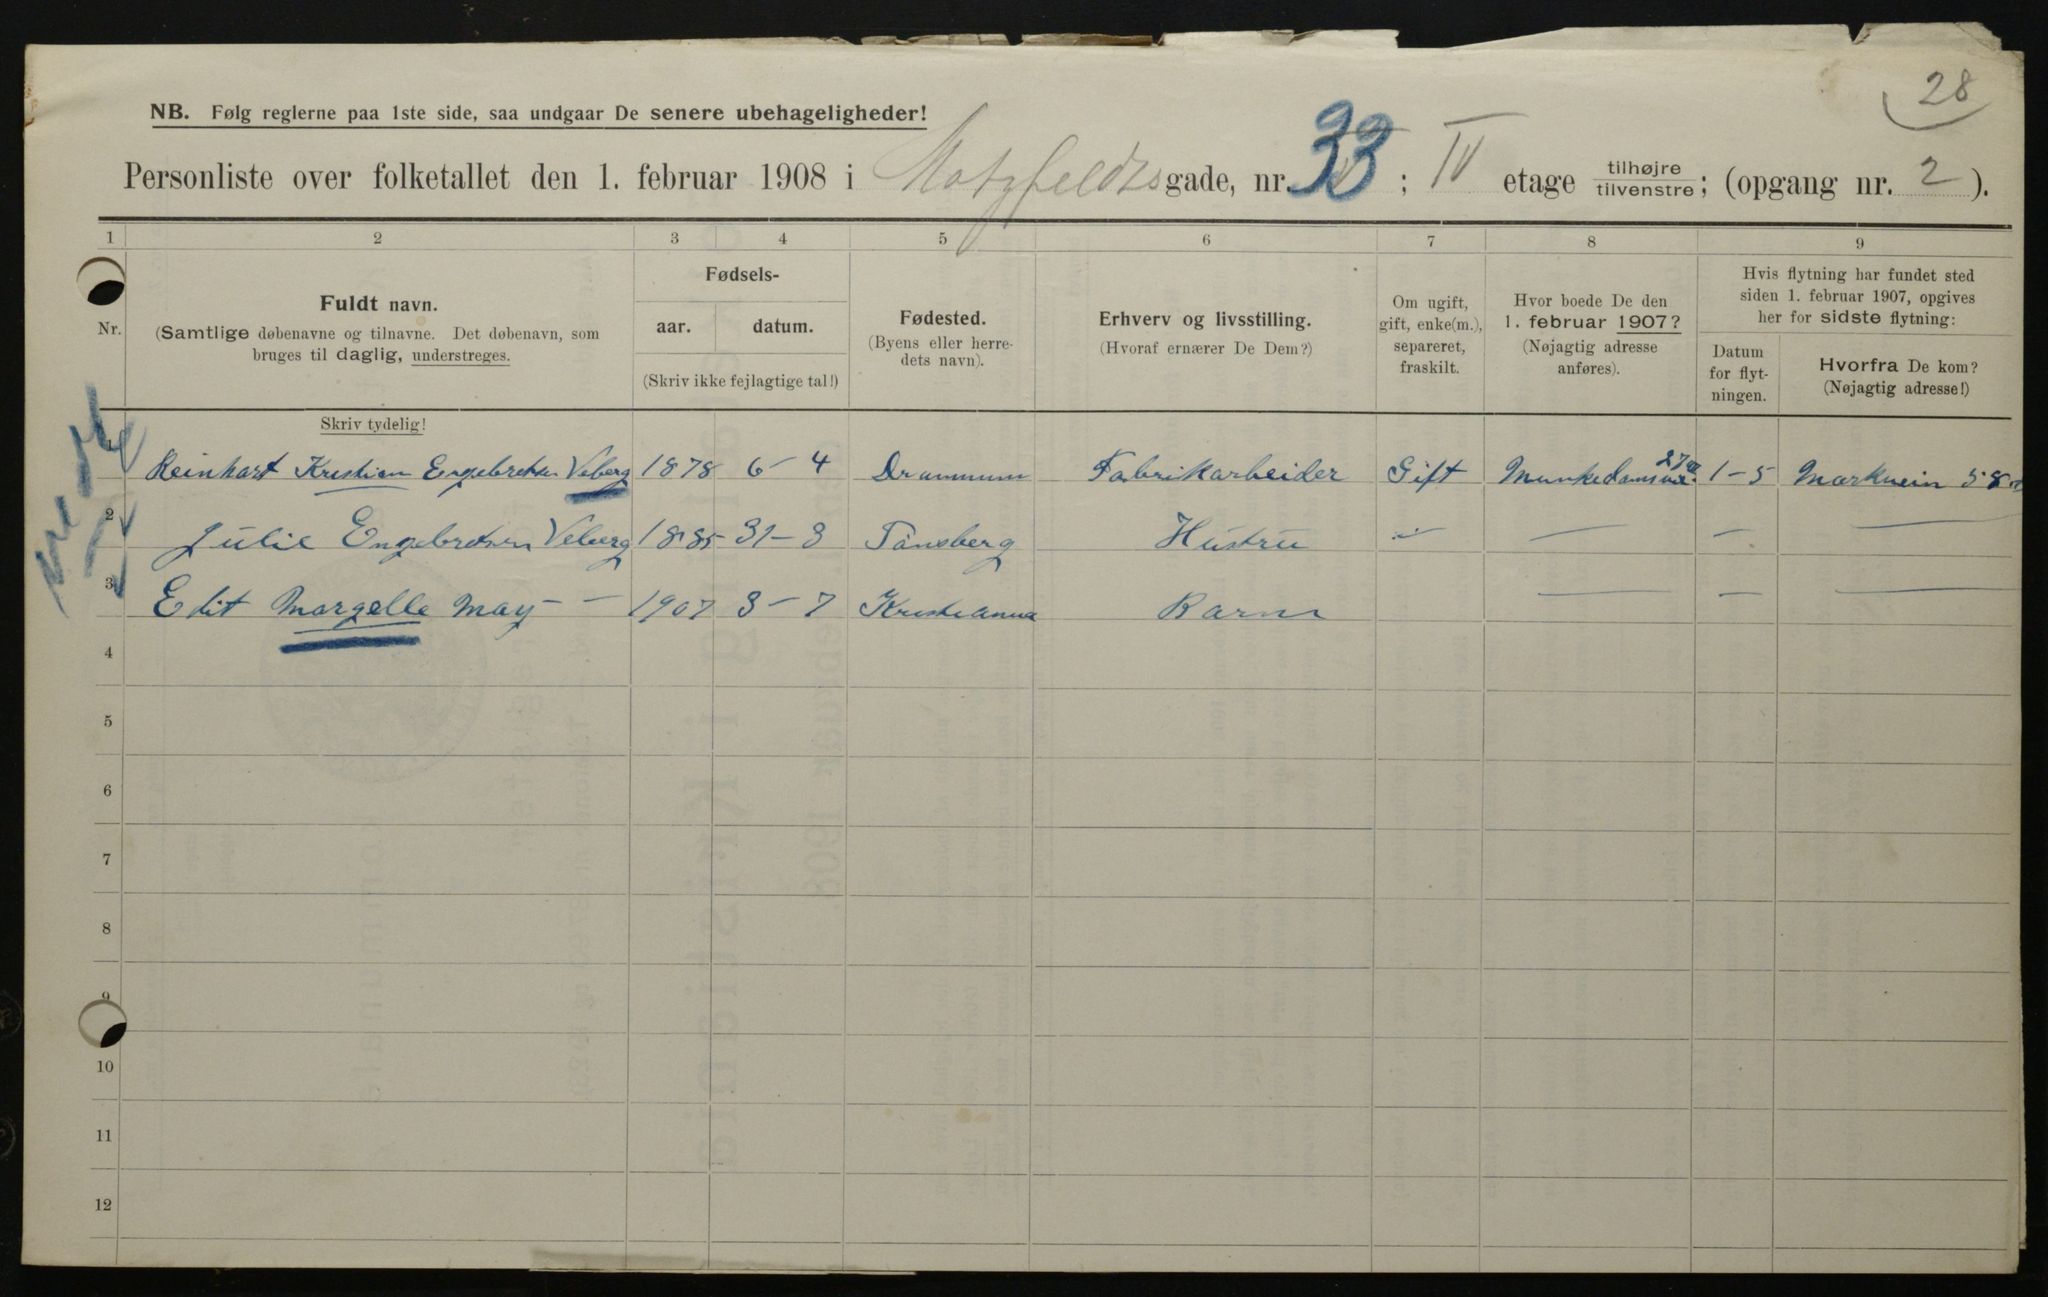 28
NB. Følg reglerne paa 1ste side, saa undgaar De senere ubehageligheder!
Personliste over folketallet den 1. februar 1908 i Motzfeldtsgade, nr. 33; IV etage tilhøjre tilvenstre; (opgang nr. 2).
1 2 3 4 5 6 7 8 9
Nr.
Fuldt navn.
(Samtlige døbenavne og tilnavne. Det døbenavn, som
bruges til daglig, understreges.
Fødsels-
aar. datum.
(Skriv ikke fejlagtige tal!)
Fødested.
(Byens eller herre-
dets navn).
Erhverv og livsstilling.
(Hvoraf ernærer De Dem?)
Om ugift,
gift, enke(m.),
separeret,
fraskilt.
Hvor boede De den
1. februar 1907?
(Nøjagtig adresse
anføres).
Hvis flytning har fundet sted
siden 1. februar 1907, opgives
her for sidste flytning:
Datum
for flyt-
ningen.
Hvorfra De kom?
(Nøjagtig adresse!)
Skriv tydelig!
1 Reinhart Kristian Engebretsen Veberg 1878 6-4 Drammen Fabrikarbeider Gift Munkedamsvei 1-5 Markvein 58
2 Julie Engebretsen Veberg 1885 31-3 Tønsberg Hustru - - - -
3 Edit Margelle May - - 1907 3-7 Kristiania Barn - - -
4
5
6
7
8
9
10
11
12